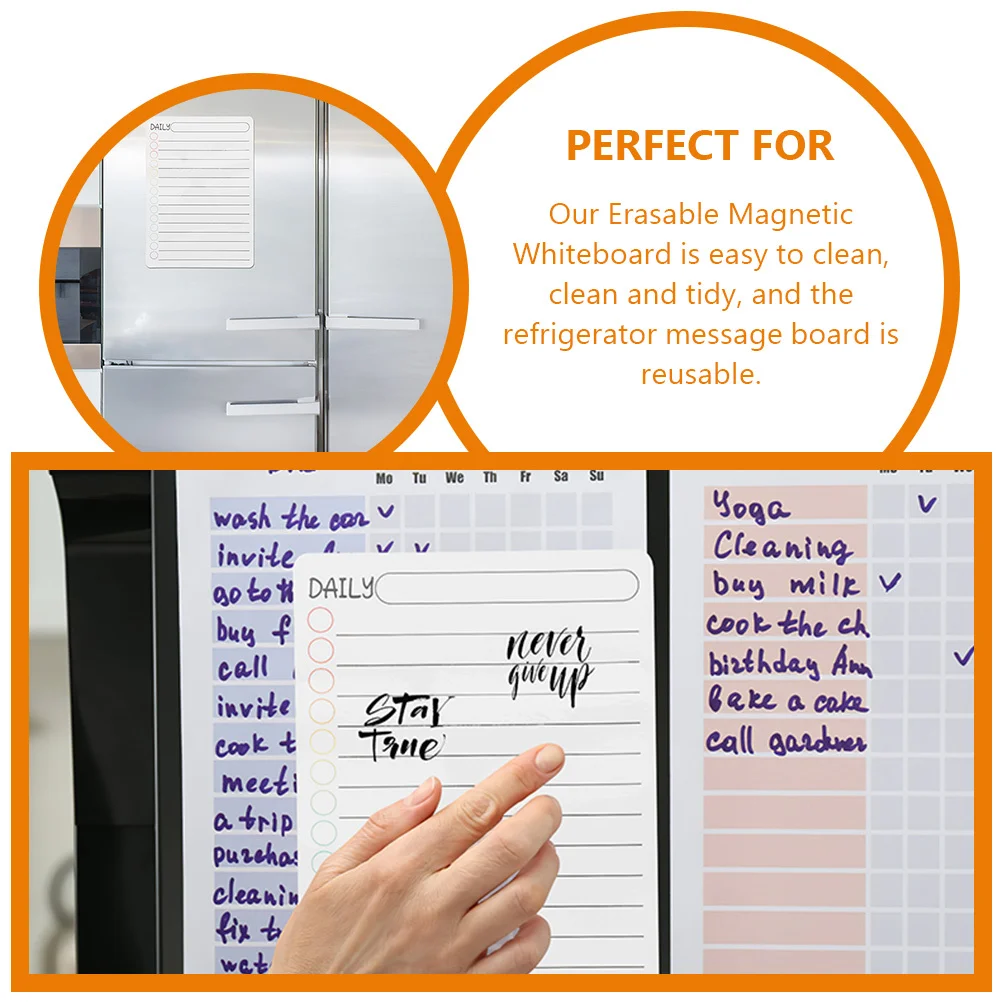 PERFECT FOR
Our Erasable Magnetic
Whiteboard is easy to clean,
clean and tidy, and the
refrigerator message board is
reusable.
DAILY
Mo Tu We Th Fr Sa Su
wash the car
invite
go to
buy
call
invite
cook
a trip
fix
DAILY
never
give up
Stay
True
Yoga
Cleaning
buy milk
cook the
birthday Ann
bake a cake
call gardner